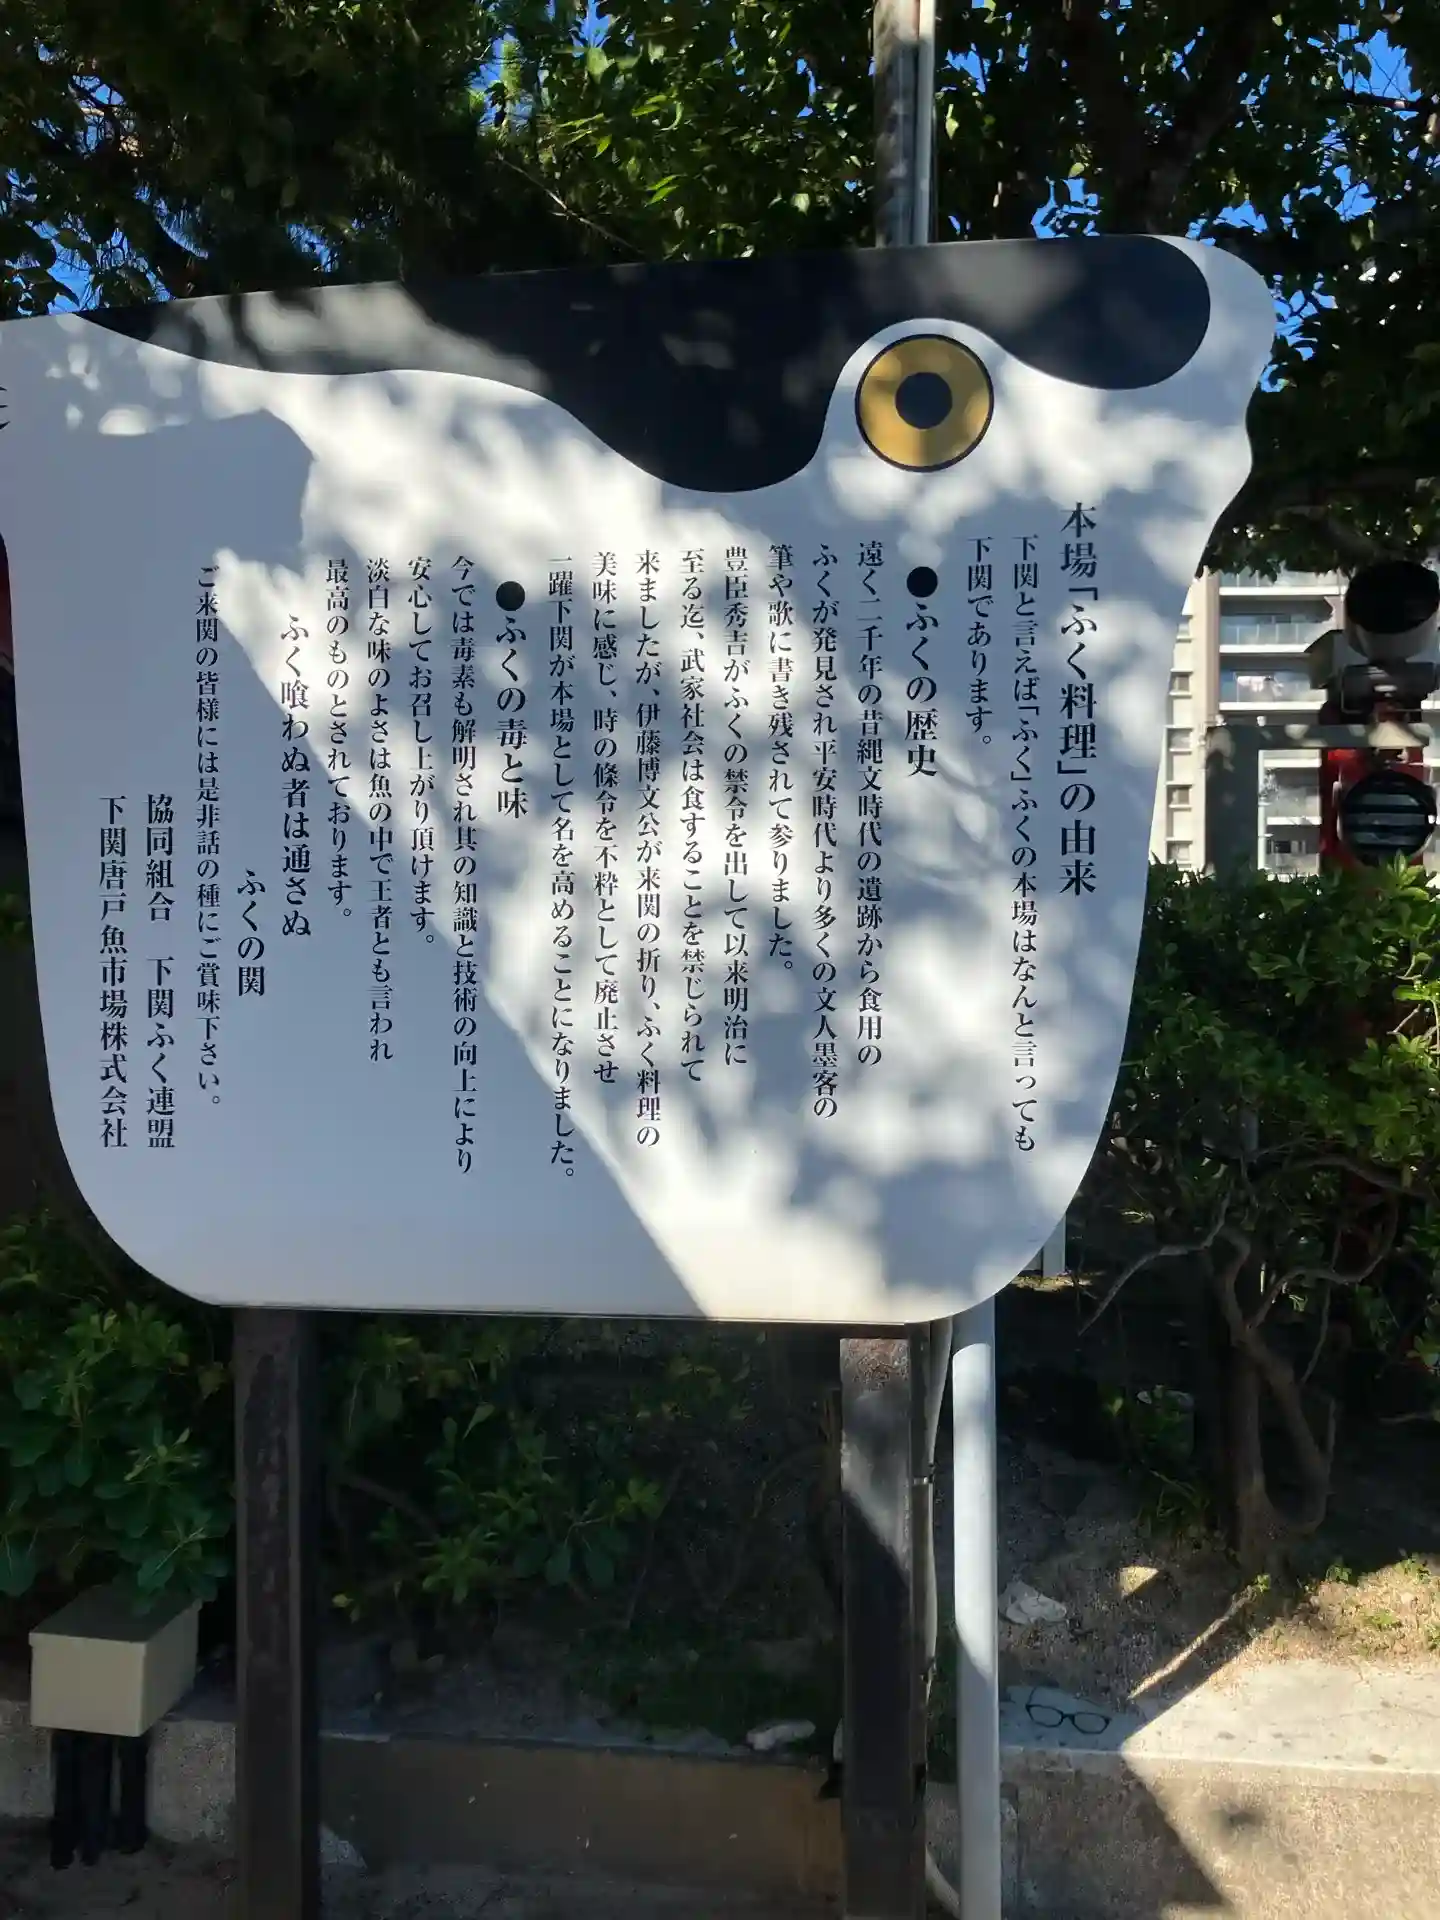 本場「ふく料理」の由来
下関と言えば「ふく」ふくの本場はなんと言っても
下関であります。
●ふくの歴史
遠く二千年の昔縄文時代の遺跡から食用の
ふくが発見され平安時代より多くの文人墨客の
筆や歌に書き残されて参りました。
豊臣秀吉がふくの禁令を出して以来明治に
至る迄、武家社会は食することを禁じられて
来ましたが、伊藤博文公が来関の折り、ふく料理の
美味に感じ、時の條令を不粋として廃止させ
一躍下関が本場として名を高めることになりました。
●ふくの毒と味
今では毒素も解明され其の知識と技術の向上により
安心してお召し上がり頂けます。
淡白な味のよさは魚の中で王者とも言われ
最高のものとされております。
ふく喰わぬ者は通さぬ
ふくの関
ご来関の皆様には是非話の種にご賞味下さい。
協同組合　下関ふく連盟
下関唐戸魚市場株式会社